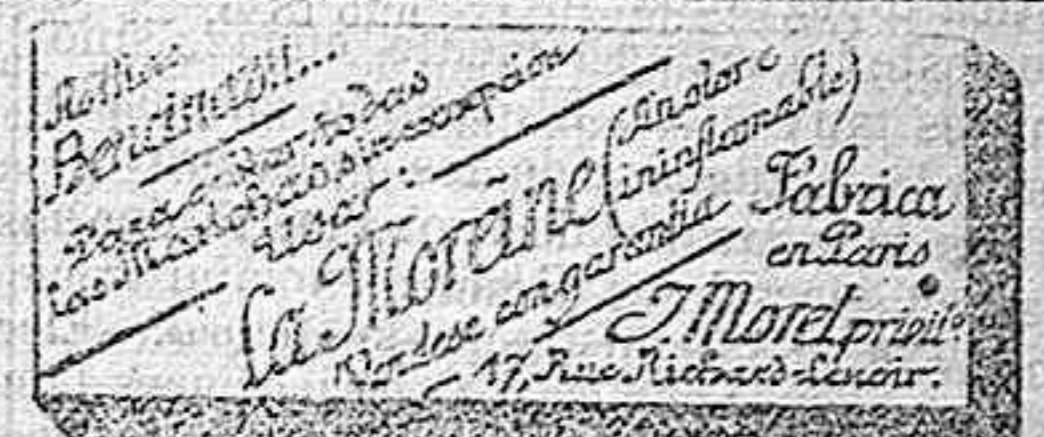 Para quitar todas
las Manchas sin excepción
usar:
La Morañne (sin olor é
ininflamable)
Vendese con garantia
Fabrica
en Paris
J. Morel privil.º
17, Rue Richard-Lenoir.